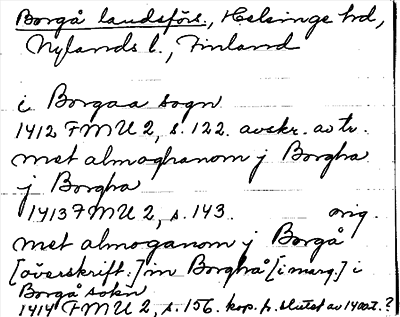 Borgå landsförs., Helsinge hd,
Nylands l., Finland
i Borgaa sogn
1412 FMU 2, s. 122. avskr. av tr.
met almoghanom j Borgha
j Borgha
1413 FMU 2, s. 143. orig.
met almoganom j Borgå
[överskrift.] in Borghå [i marg.] i
Borgå sokn
1414 FMU 2, s. 156. kop. fr. slutet av 1400t.?